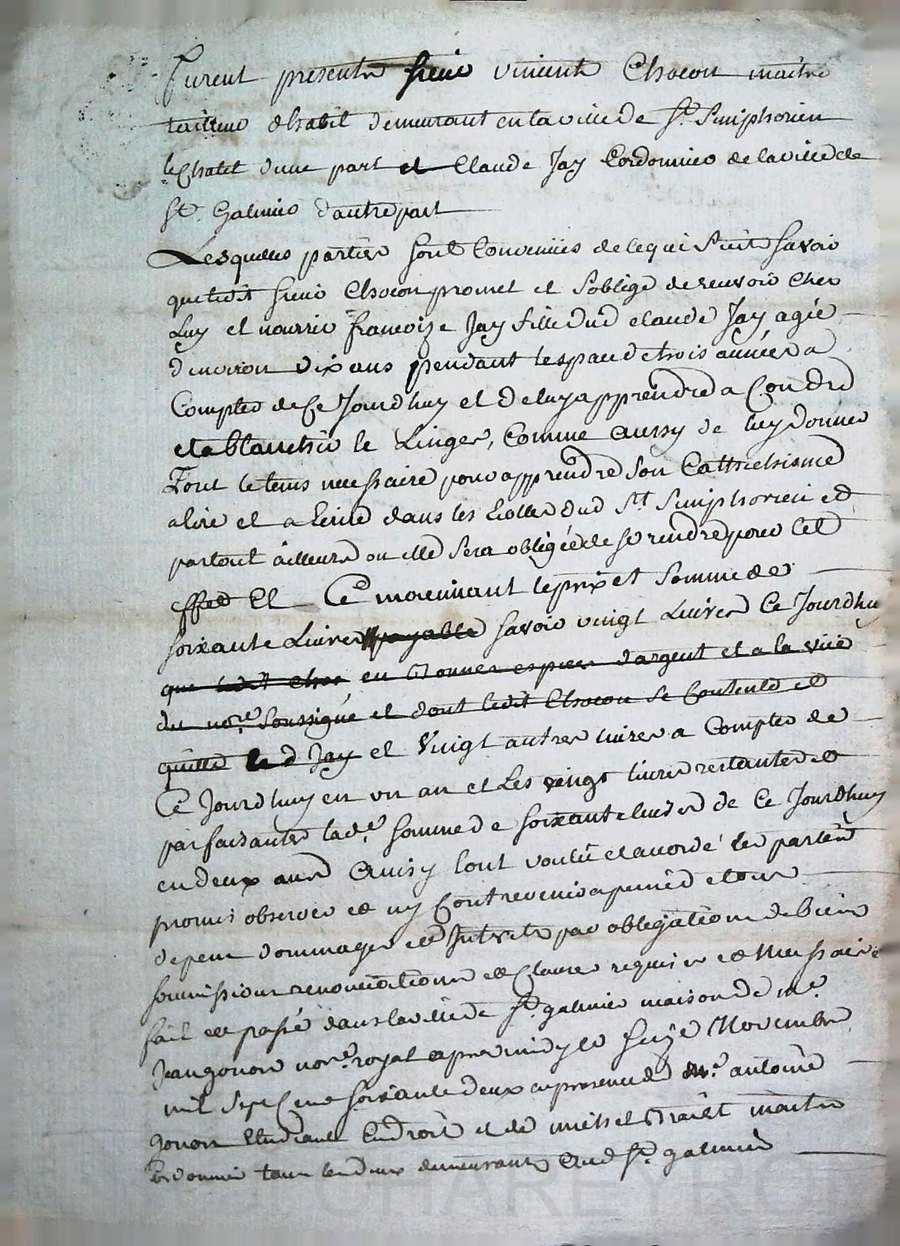 furent presents sieur vincent Chocon maitre
tailleur dhabit demeurant en la ville de St. Simphorien
le Chatel dune part et Claude Jay Cordonnier de la ville de
St. Galmier d'autre part
Lesquelles parties sont Convenues de ce qui suit savoir
que ledit sieur Chocon promet et soblige de recevoir Cher
Luy et nourrir francoize Jay fille dud claude Jay agée
denviron dix ans pendant lespace de trois années a
Compter de Ce Jourdhuy et de luy apprendre a Coudre
et a blanchir le Linger, Comme aussy de luy donner
Tout le tems necessaire pour apprendre son Cattechisme
a lire et a Ecrire dans les Ecolles dud St. Simphorien et
partout ailleurs ou elle sera obligée de se rendre pour cet
effet Et Ce moiennant le prix et somme de
soixante Livres payable savoir vingt Livres Ce Jourdhuy
que ledit en bonnes espèces dargent et a la vüe
du nore. soussigné et dont ledit Chocon se Contente et
quitte led Jay et Vingt autres livres a Compter de
Ce Jourdhuy en un an et Les vingt livres restantes et
parfaisantes lade. somme de soixante livres de Ce Jourdhuy
en deux ans Ainsy tout voulu et accordé les parties
promis observer et ny Contrevenir a peine de tous
depens dommages et Interets par obligations de biens
soumissions renonciations et Clauses requises et necessaires
fait et passé dans la ville de St. galmier maison de me.
Jean gonon nore. royal apres midy le seize Novembre
mil sept Cent soixante deux en presence de me. antoine
gonon Etudiant En droit et de michel maitre
Cordonnier tous les deux demeurants aud St. galmier
CHAREYRON